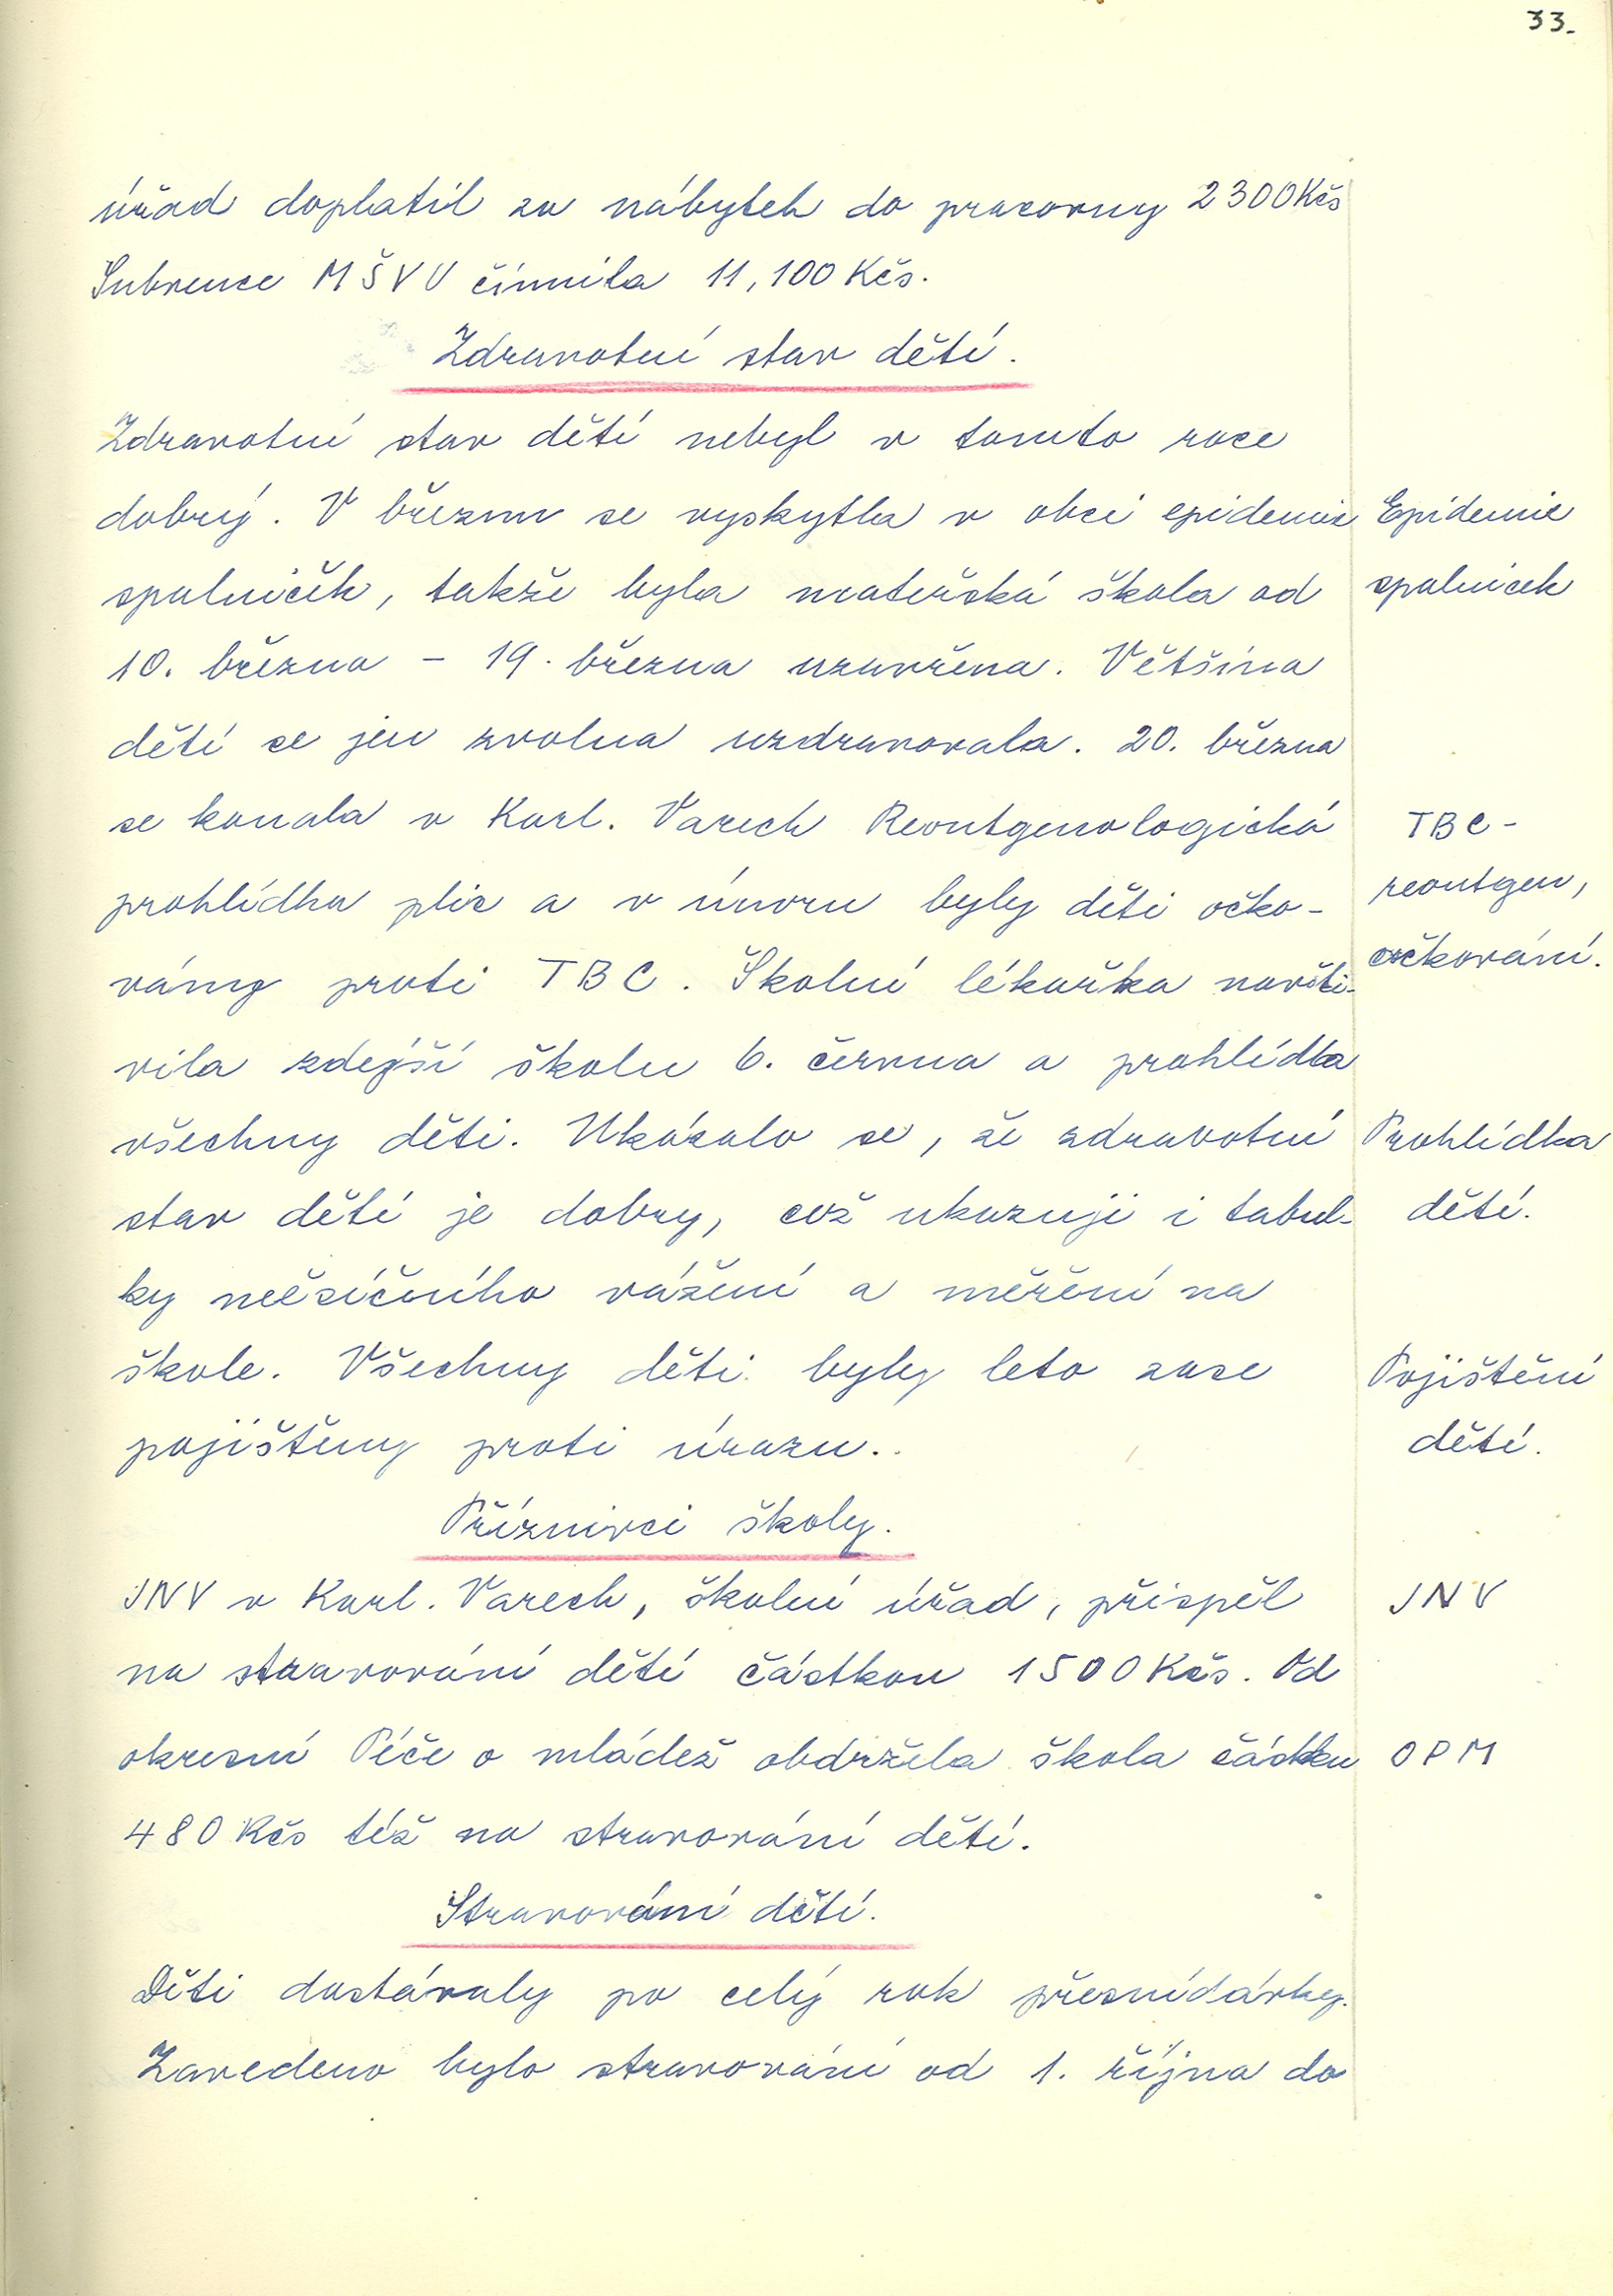 33.
úřad doplatil za nábytek do pracovny 2300 Kčs
Subvence MŠVU činnila 11,100 Kčs.
Zdravotní stav dětí.
Zdravotní stav dětí nebyl v tomto roce
dobrý. V březnu se vyskytla v obci epidemie
Epidemie
spalniček, takže byla mateřská škola od
spalnicek
10. března – 19. března uzavřena. Většina
dětí se jen zvolna uzdravovala. 20. března
se konala v Karl. Varech Reontgenologická
TBC -
prohlídka plic a v únoru byly děti očko-
reontgen,
vány proti TBC. Školní lékařka navští-
očkování.
vila zdejší školu 6. června a prohlídla
všechny děti. Ukázalo se, že zdravotní
Prohlídka
stav dětí je dobry, což ukazuji i tabul-
dětí.
ky měsíčního vážení a měření na
škole. Všechny děti byly leto zase
Pojištění
pojištěny proti úrazu.
dětí.
Příznivci školy.
JNV v Karl. Varech, školní úřad, přispěl
JNV
na stravování dětí částkou 1500 Kčs. Od
okresní Péče o mládež obdržela škola částku
OPM
480 Kčs též na stravování dětí.
Stravování dětí.
Děti dostávaly po celý rok přesnídávky.
Zavedeno bylo stravování od 1. října do